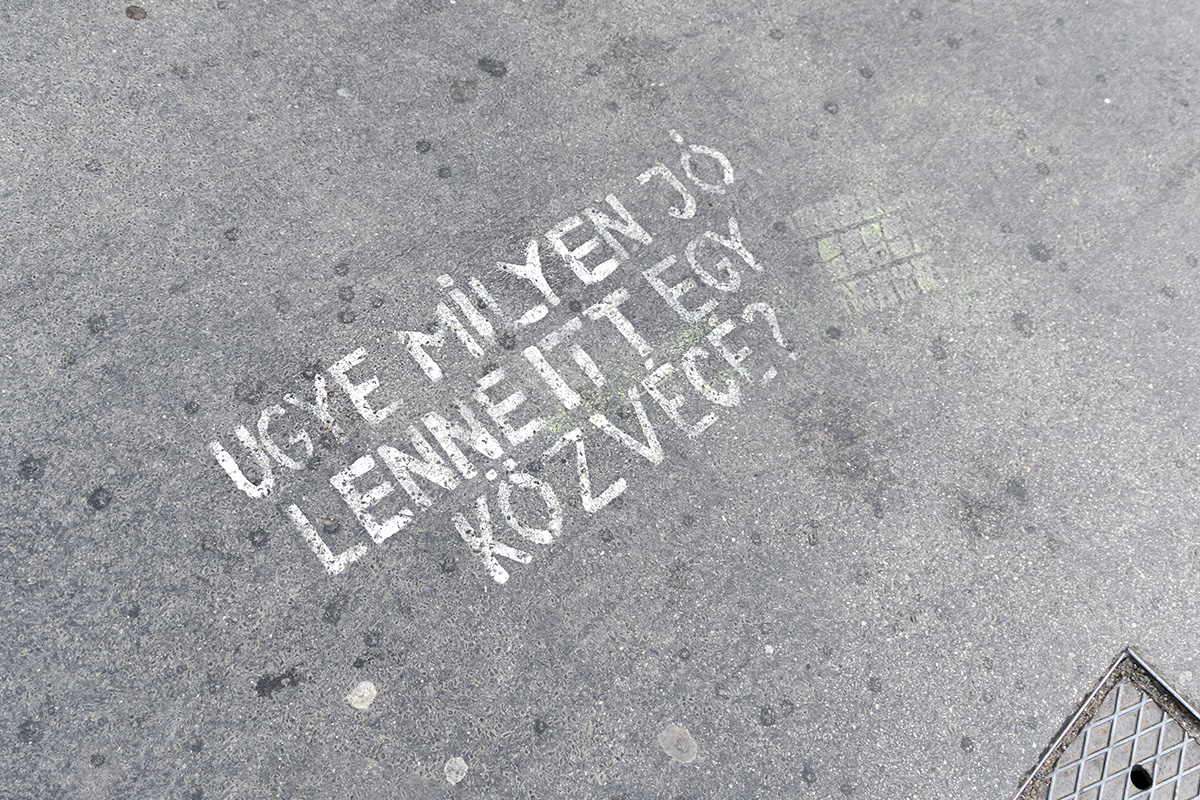 UGYE MILYEN JÓ
LENNE ITT EGY
KÖZ VÉCÉ?